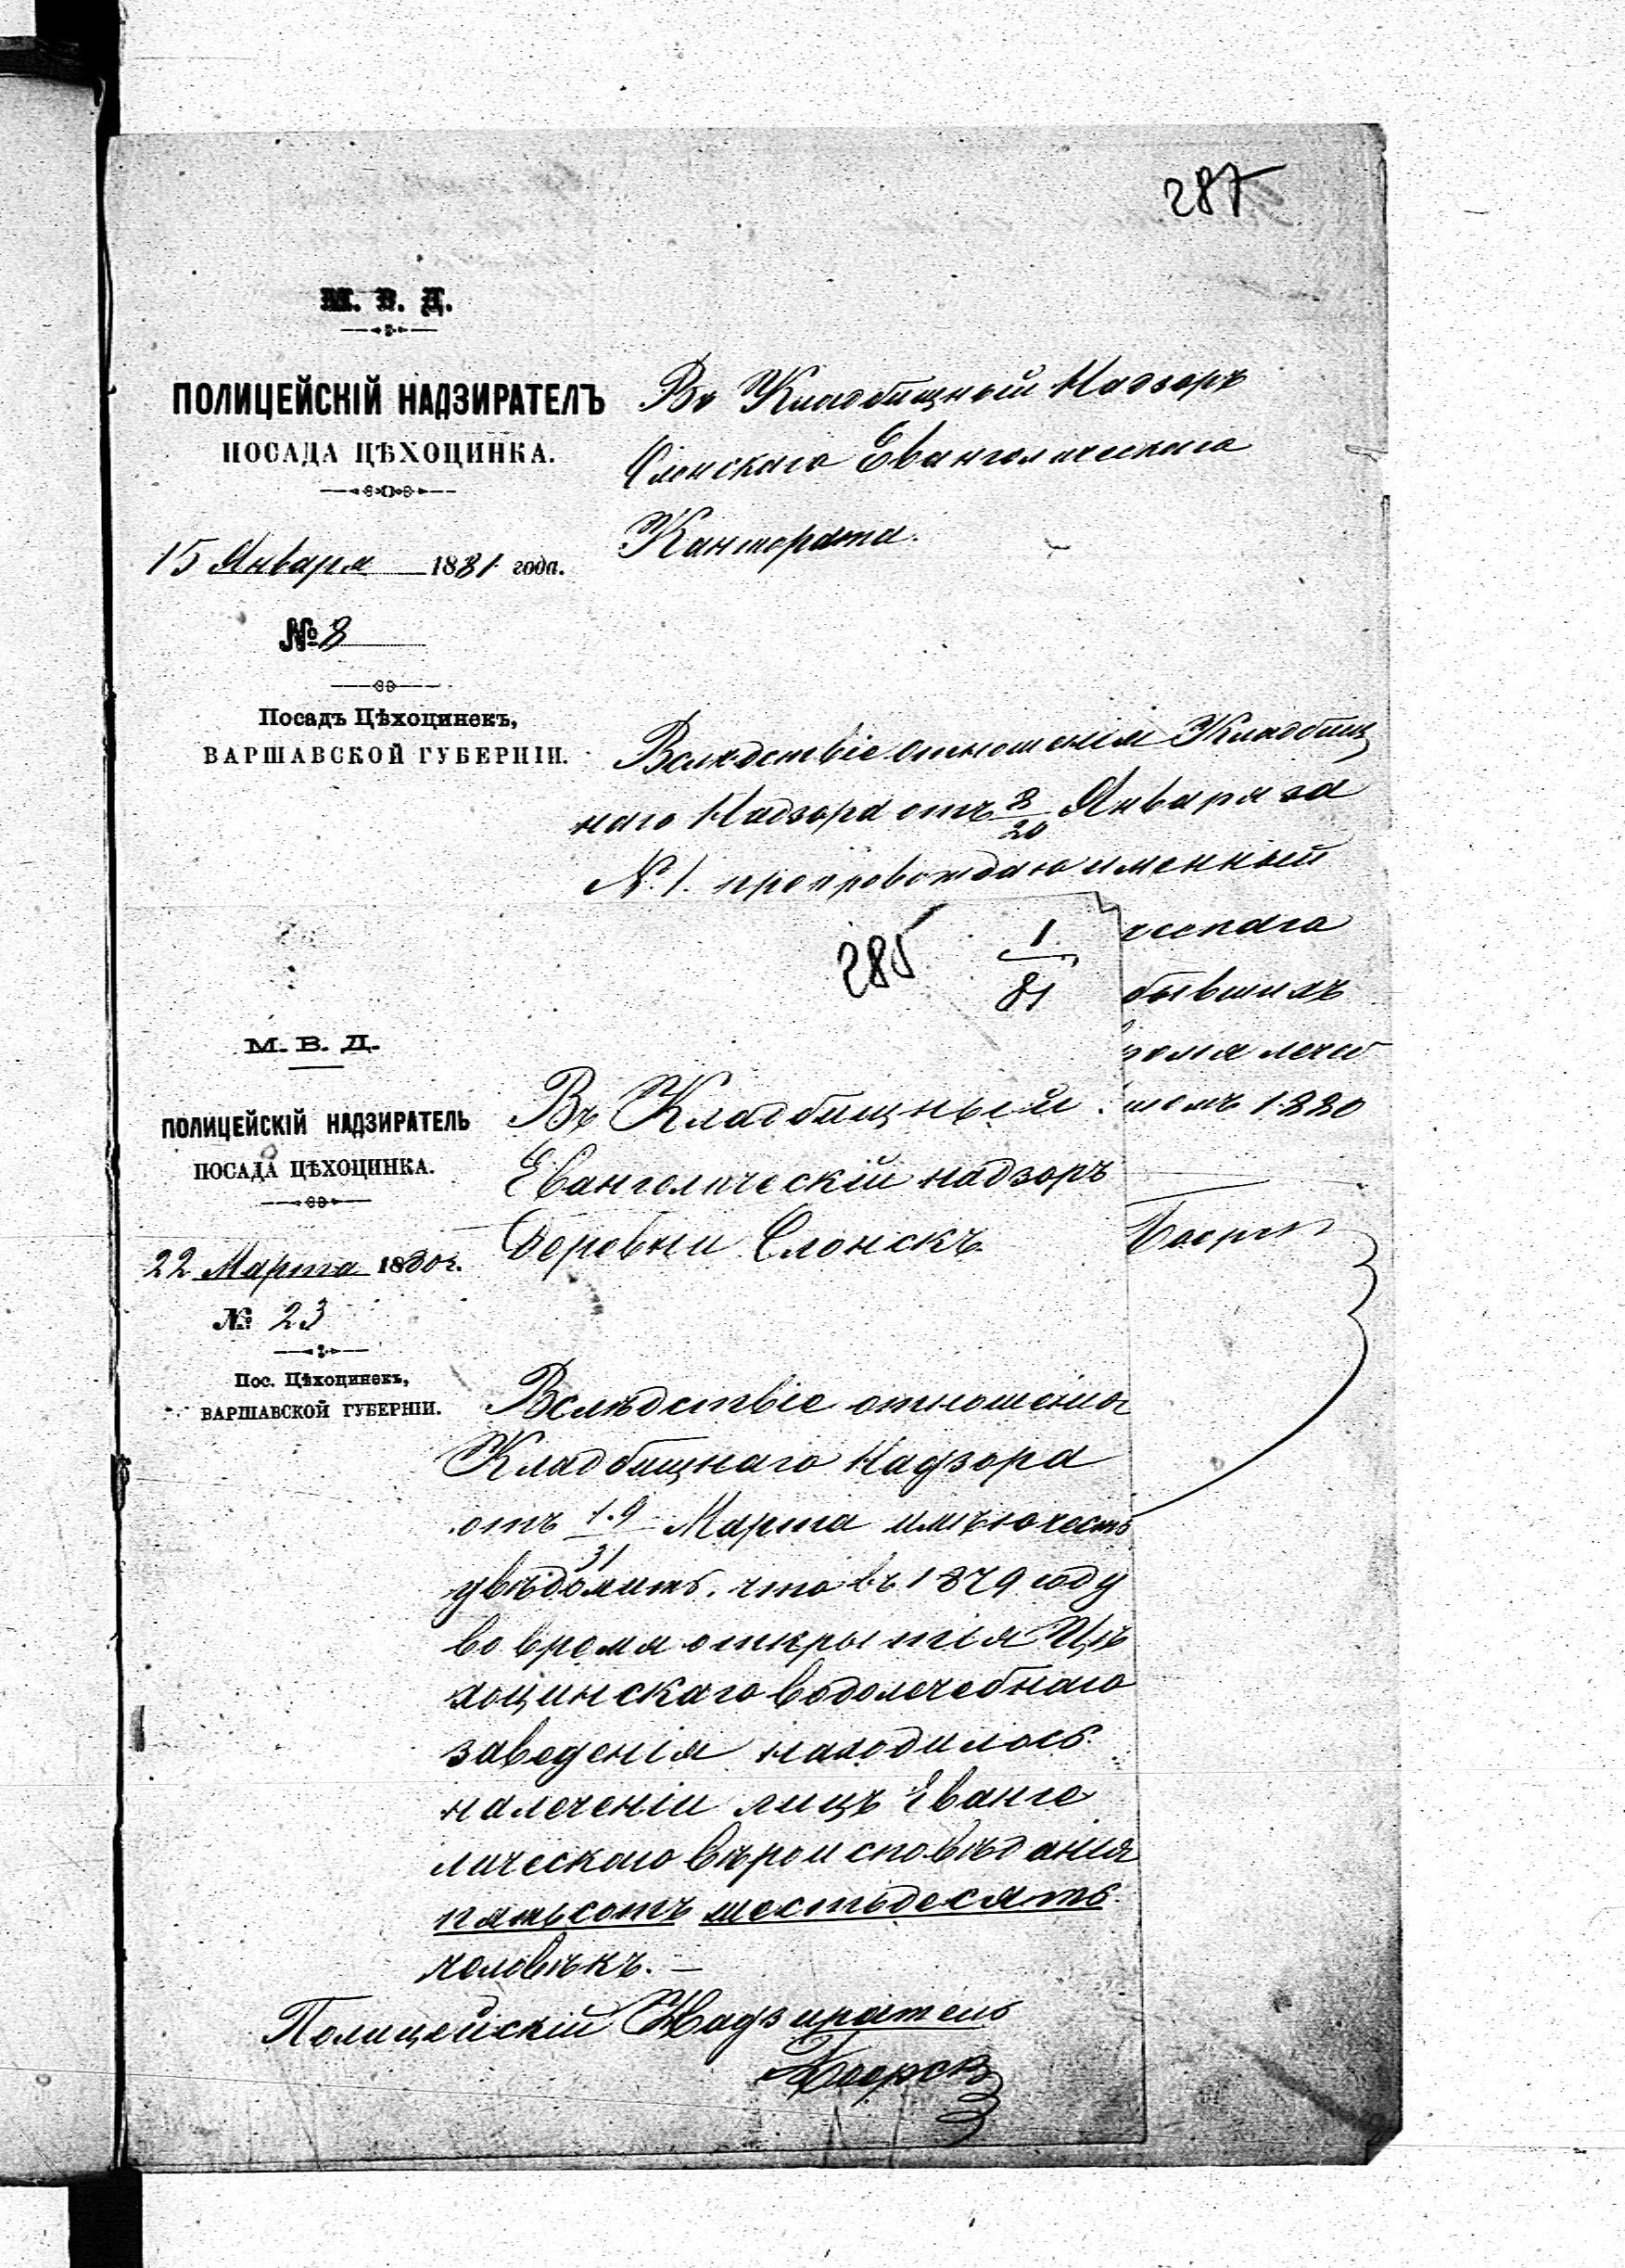 287
М. В. Д.
ПОЛИЦЕЙСКІЙ НАДЗИРАТЕЛЪ
ПОСАДА ЦѢХОЦИНКА.
15 Января 1881 года.
№ 8
Посадъ Цѣхоцинекъ,
ВАРШАВСКОЙ ГУБЕРНІИ.
Въ Кладбищный Надзоръ
Слонскаго Евангелическаго
Кантората.
Вслѣдствіе отношенія Кладбищ
наго Надзора отъ 8/20 Января за
№ 1. препровождаю именный
ческаго
бывшихъ
1880
285
1/81
М. В. Д.
ПОЛИЦЕЙСКІЙ НАДЗИРАТЕЛЬ
ПОСАДА ЦѢХОЦИНКА.
22 Марта 1880 г.
№ 23
Пос. Цѣхоцинекъ,
ВАРШАВСКОЙ ГУБЕРНІИ.
Въ Кладбищный
Евангелическій надзоръ
Деревни Слонскъ.
Вслѣдствіе отношенія
Кладбищнаго Надзора
отъ 19/31 Марта имѣю честь
увѣдомить, что въ 1879 году
во время открытія Цѣ
хоцинскаго водолечебнаго
заведенія находилось
на леченіи лицъ Еванге
лическаго вѣроисповѣданія
пятьсотъ шестьдесятъ
человѣкъ. —
Полицейскій Надзиратель